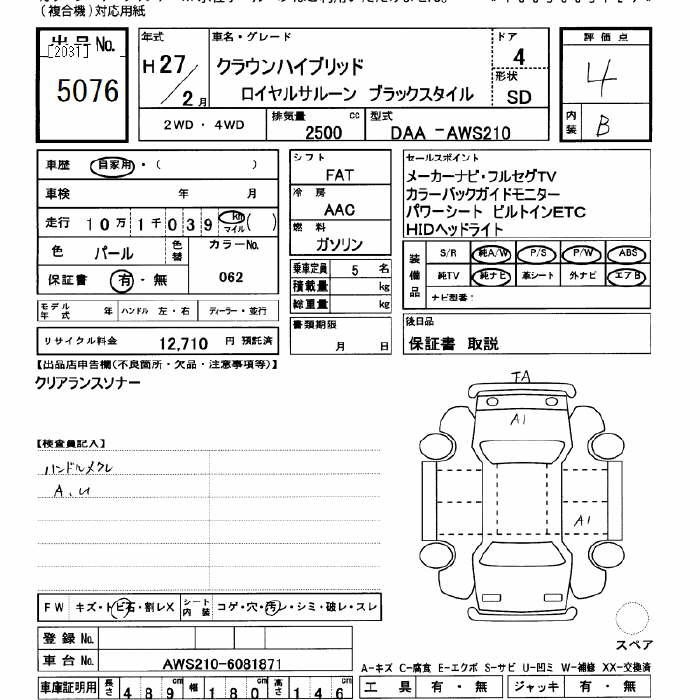 (複合機)対応用紙
出品No.
[2031]
5076
年式
H27/2月
車名・グレード
クラウンハイブリッド
ロイヤルサルーン ブラックスタイル
ドア
4
形状
SD
評価点
4
内装
B
2WD・4WD
排気量 cc
2500
型式
DAA -AWS210
車歴 自家用・( )
車検 年 月
走行 10万1千039 km マイル ( )
色 パール 色替
カラーNo.
062
保証書 有・無
モデル年式 年 ハンドル 左・右 ディーラー・並行
リサイクル料金 12,710 円 預託済
シフト
FAT
冷房
AAC
燃料
ガソリン
乗車定員 5 名
積載量 kg
総重量 kg
書類期限
月 日
セールスポイント
メーカーナビ・フルセグTV
カラーバックガイドモニター
パワーシート ビルトインETC
HIDヘッドライト
装備品
S/R 純A/W P/S P/W ABS
純TV 純ナビ 革シート 外ナビ エアB
ナビ型番:
後日品
保証書 取説
【出品店申告欄(不良箇所・欠品・注意事項等)】
クリアランスソナー
【検査員記入】
ハンドルメクレ
A、U
A1
A1
FW キズ・トビ石・割レX シート内装 コゲ・穴・汚レ・シミ・破レ・スレ
登録No.
車台No.
AWS210-6081871
車庫証明用 長さ 489cm 幅 180cm 高さ 146cm
スペア
A-キズ C-腐食 E-エクボ S-サビ U-凹ミ W-補修 XX-交換済
工具 有・無 ジャッキ 有・無